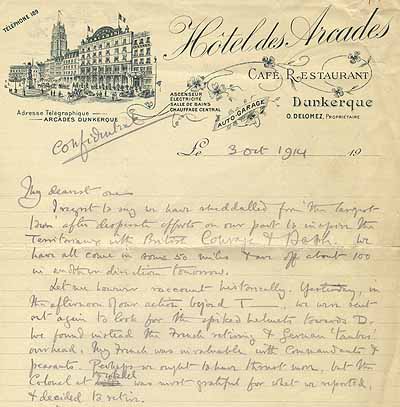 TÉLÉPHONE 189
Hôtel des Arcades
CAFÉ RESTAURANT
Dunkerque
O. DELOMEZ, PROPRIÉTAIRE
ASCENSEUR
ELECTRICITÉ
SALLE DE BAINS
CHAUFFAGE CENTRAL
AUTO-GARAGE
Adresse Télégraphique
ARCADES DUNKERQUE
Confidential
Le 3 Oct 1914 19
My dearest one
I regret to say we have skedaddled from the target
town after desperate efforts on our part to inspire the
Territoriaux with British Courage & Dash. We
have all come in some 50 miles & are off about 100
in another direction tomorrow.
Let me however recount historically. Yesterday, in
the afternoon of our action beyond T——, we were sent
out again to look for the spiked helmets towards D.
We found instead the French retiring & German
overhead. My French was invaluable with Commandants &
peasants. Perhaps we ought to have thrust more, but the
Colonel at was most grateful for what we reported,
& decided to retire.